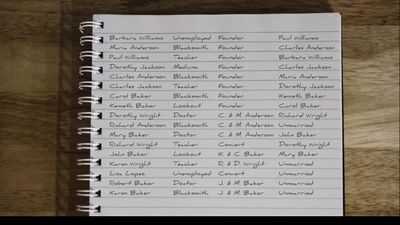 Barbara Williams Unemployed Founder Paul Williams
Maria Anderson Blacksmith Founder Charles Anderson
Paul Williams Teacher Founder Barbara Williams
Dorothy Jackson Medium Founder Charles Jackson
Charles Anderson Blacksmith Founder Maria Anderson
Charles Jackson Teacher Founder Dorothy Jackson
Carol Baker Blacksmith Founder Kenneth Baker
Kenneth Baker Lookout Founder Carol Baker
Dorothy Wright Doctor C. & M. Anderson Richard Wright
Richard Anderson Blacksmith C. & M. Anderson Unmarried
Mary Baker Doctor C. & M. Anderson John Baker
Richard Wright Teacher Convert Dorothy Wright
John Baker Lookout K. & C. Baker Mary Baker
Karen Wright Teacher R. & D. Wright Unmarried
Lisa Lopez Unemployed Convert Unmarried
Robert Baker Doctor J. & M. Baker Unmarried
Karen Baker Blacksmith J. & M. Baker Unmarried